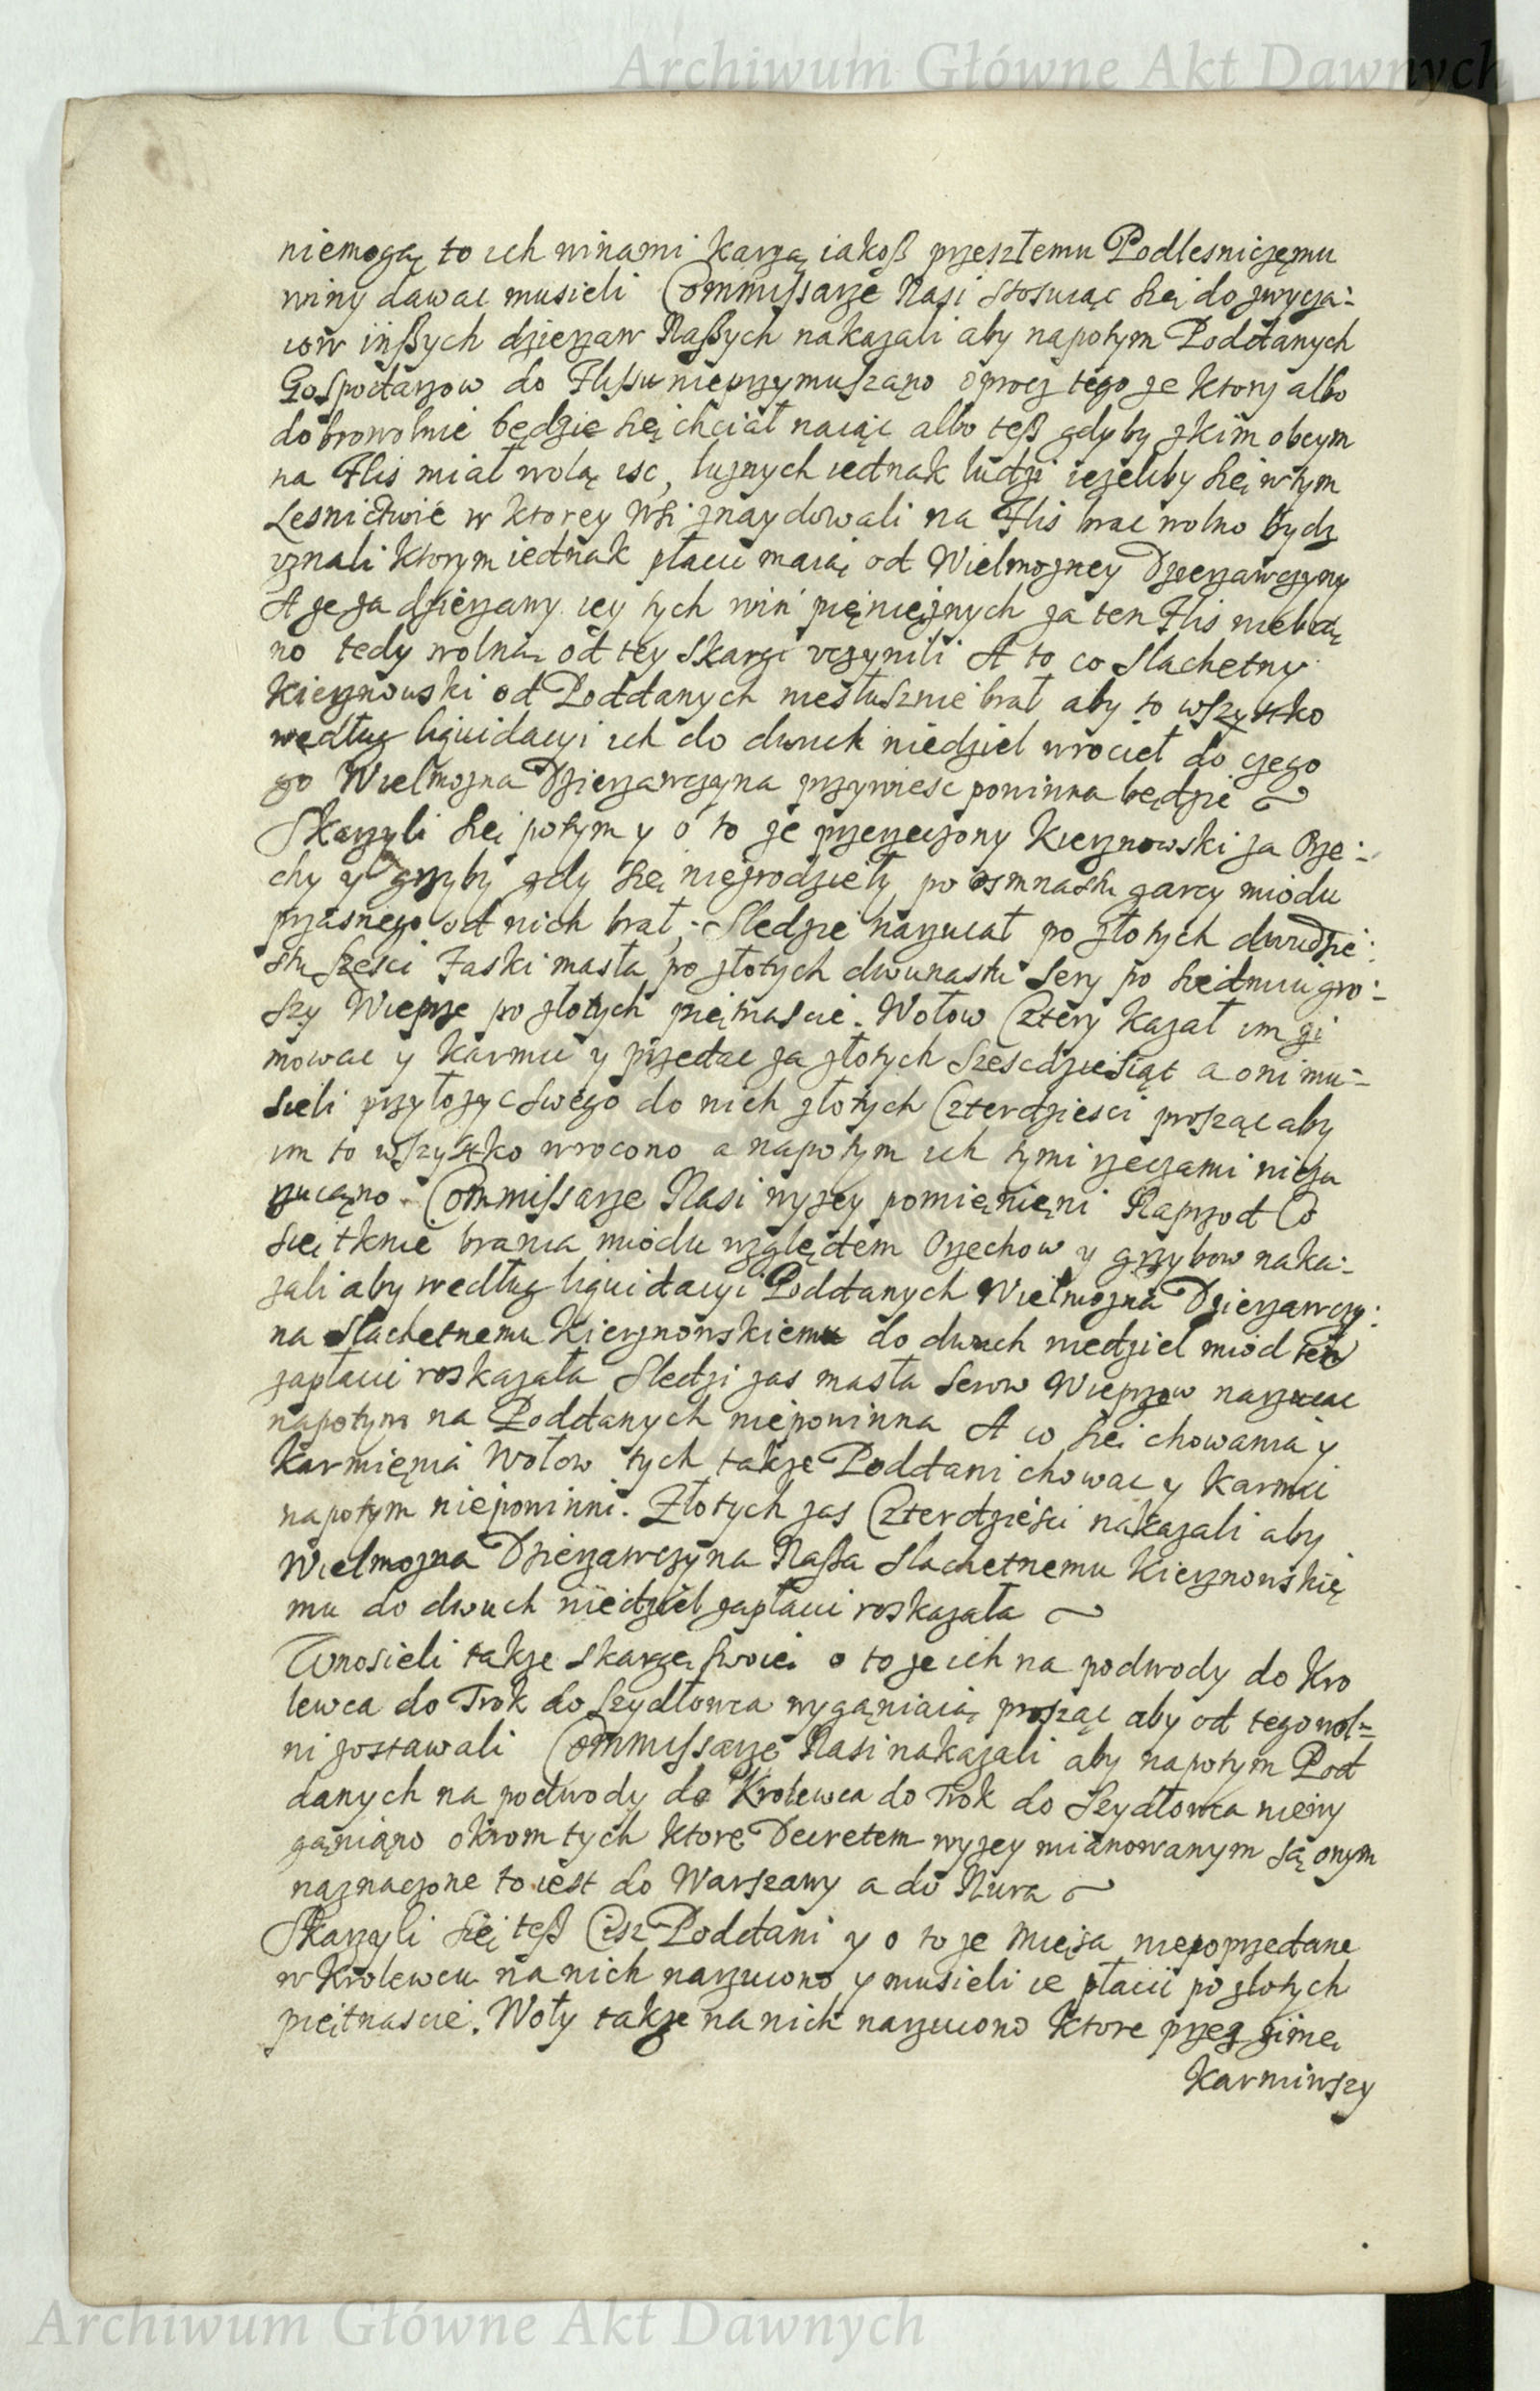 Archiwum Główne Akt Dawnych
niemogą to ich winami karzą iakoß przeszłemu Podlesniczęmu
winy dawac musieli Commissarze Nasi stosuiąc się do zwycza-
iow inßych dzierzaw Naßych nakazali aby napotym Poddanych
Gospodarzow do Flisu nieprzymuszano oprocz tego ze ktory albo
dobrowolnie będzie się chciał naiąc albo teß gdyby z kim obcym
na Flis miał wolą isc, luznych iednak ludzi iezeliby się w tym
Lesnictwie w ktorey Wsi znaydowali na Flis brac wolno bydz
uznali ktorym iednak płacic maią od Wielmozney Dzierzawczyny
A ze za dzierzawy iey tych win pięnięznych za ten Flis niebra
no tedy wolną od tey skargi uczynili A to co Slachetny
Kierznowski od Poddanych niesłusznie brał aby to wszystko
według liquidacyi ich do dwuch niedziel wrocieł do czego
go Wielmozna Dzierzawczyna przywiesc powinna będzie
Skarzyli się potym y o to ze przerzeczony Kierznowski za Orze-
chy y grzyby gdy się niezrodzieły po osmnastu garcy miodu
przasnego od nich brał, Sledzie narzucał po złotych dwudzie-
stu szesci Faski masła po złotych dwunastu Sery po siedmiu gro-
szy Wieprze po złotych piętnascie. Wołow Cztery kazał im zi
mowac y karmic y przedac za złotych szescdziesiąt a oni mu-
sieli przyłozyc swego do nich złotych Czterdziesci prosząc aby
im to wszystko wrocono a napotym ich tymi rzeczami nieza
rzucąno. Commissarze Nasi wyzey pomięnięni Naprzod Co
się tknie brania miodu względem Orzechow y grzybow naka-
zali aby według liquidacyi Poddanych Wielmozna Dzierzawczy-
na Slachetnemu Kierznowskiemu do dwuch niedziel miod ten
zapłacic roskazała Sledzi zas masła Serow Wieprzow narzucac
napotym na Poddanych niepowinna A co się chowania y
karmięnia Wołow tych takze Poddani chowac y karmic
napotym niepowinni. Złotych zas Czterdziesci nakazali aby
Wielmozna Dzierzawczyna Naßa Slachetnemu Kierznowskię
mu do dwuch niedziel zapłacic roskazała
Wnosieli takze skargę swoię o to ze ich na podwody do Kro
lewca do Trok do Szydłowca wyganiaią prosząc aby od tego wol-
ni zostawali Commissarze Nasi nakazali aby napotym Pod
danych na podwody do Krolewca do Trok do Szydłowca niewy
ganiąno okrom tych ktore Decretem wyzey mianowanym są onym
naznaczone to iest do Warszawy a do Nura
Skarzyli się teß Ciz Poddani y o to ze Mięsa niepoprzedane
w Krolewcu na nich narzucono y musieli ie płacic po złotych
piętnascie. Woły takze na nich narzucono ktore przez zimę
Karmiwszy
Archiwum Główne Akt Dawnych